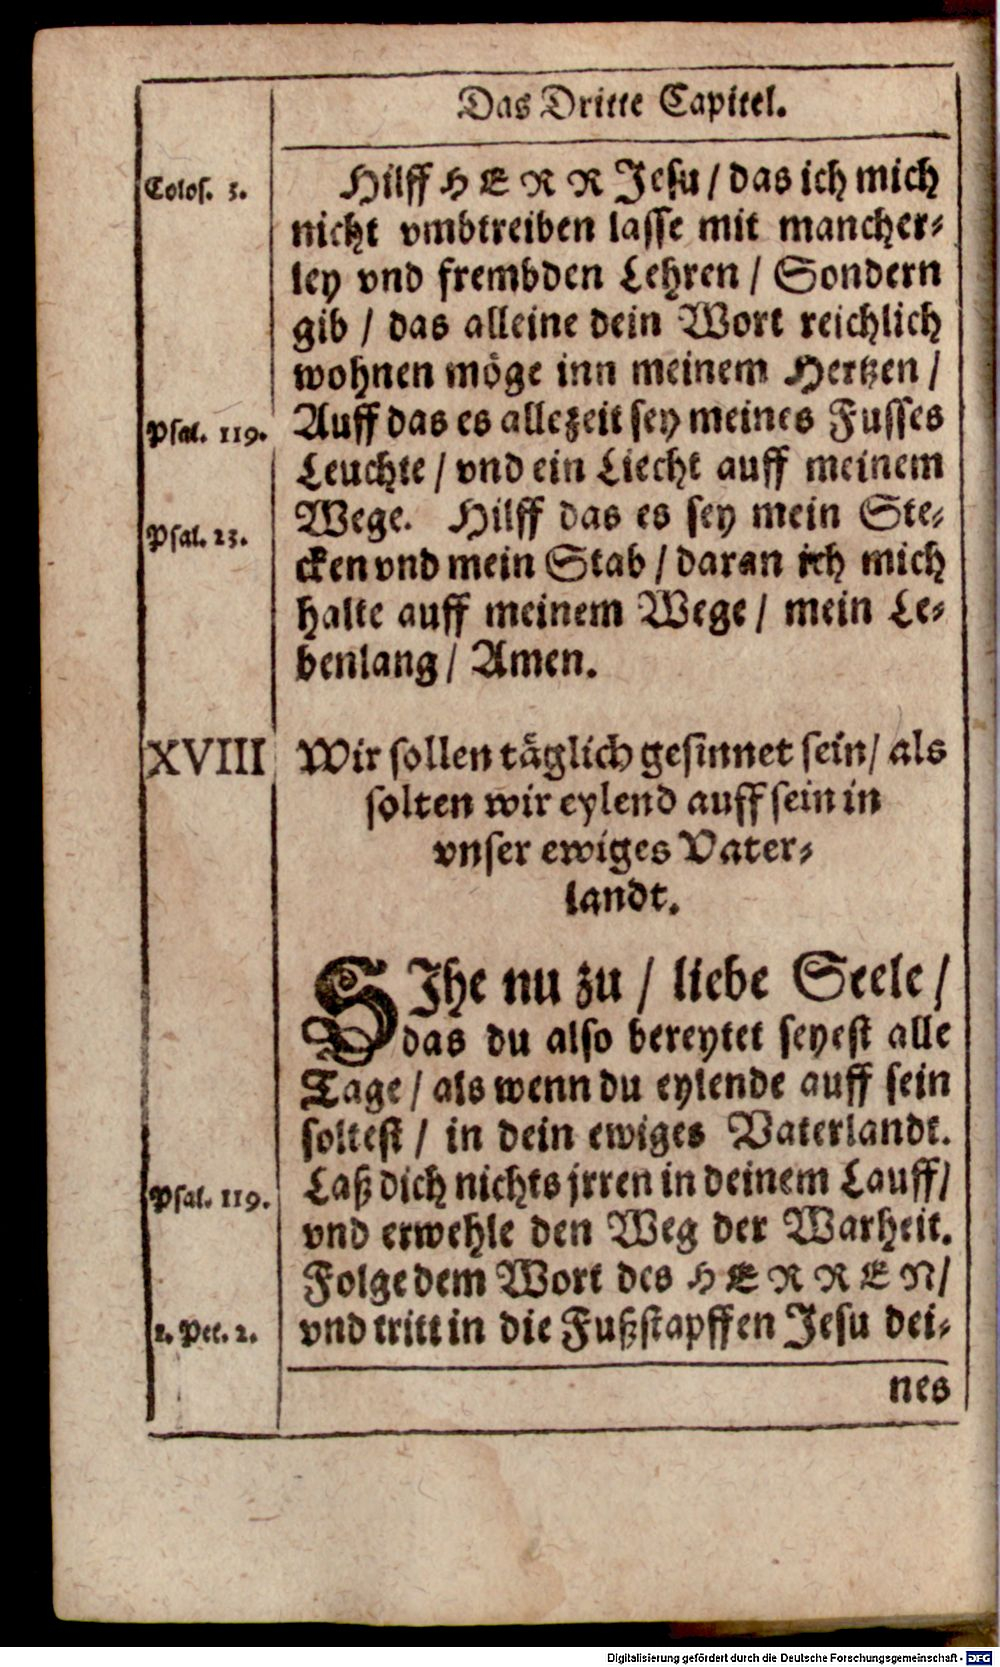 Das Dritte Capitel.
Colos. 3.
Hilff HERR Jesu / das ich mich
nicht vmbtreiben lasse mit mancher⸗
ley vnd frembden Lehren / Sondern
gib / das alleine dein Wort reichlich
wohnen möge inn meinem Hertzen /
Psal. 119.
Auff das es allezeit sey meines Fusses
Leuchte / vnd ein Liecht auff meinem
Psal. 23.
Wege. Hilff das es sey mein Ste⸗
cken vnd mein Stab / daran ich mich
halte auff meinem Wege / mein Le⸗
benlang / Amen.
XVIII
Wir sollen täglich gesinnet sein / als
solten wir eylend auff sein in
vnser ewiges Vater⸗
landt.
SIhe nu zu / liebe Seele /
das du also bereytet seyest alle
Tage / als wenn du eylende auff sein
soltest / in dein ewiges Vaterlandt.
Laß dich nichts jrren in deinem Lauff /
Psal. 119.
vnd erwehle den Weg der Warheit.
Folge dem Wort des HERREN /
1. Pet. 2.
vnd tritt in die Fußstapffen Jesu dei⸗
nes
Digitalisierung gefördert durch die Deutsche Forschungsgemeinschaft - DFG